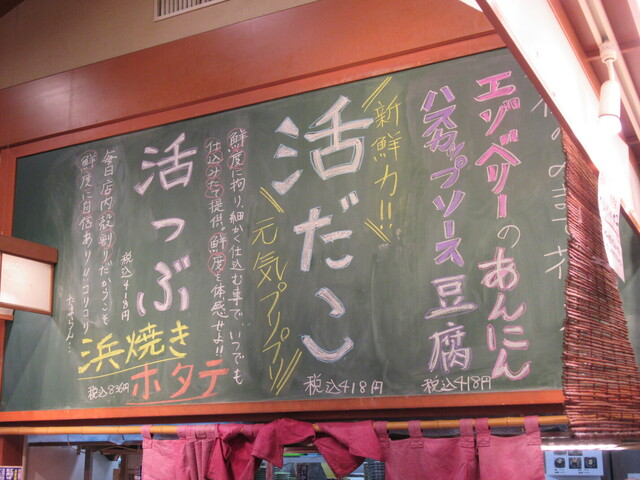 エゾベリーのあんにん
ハスカップソース豆腐
税込418円
新鮮力!!
活だこ
元気プリプリ!!
税込418円
鮮度に拘り、細かく仕込む事で、いつでも
仕込みたて提供、鮮度を体感せよ!!
活つぶ
税込418円
毎日店内殻割りだからこそ
鮮度に自信あり!!コリコリ
たまらん…
浜焼き
ホタテ
税込836円